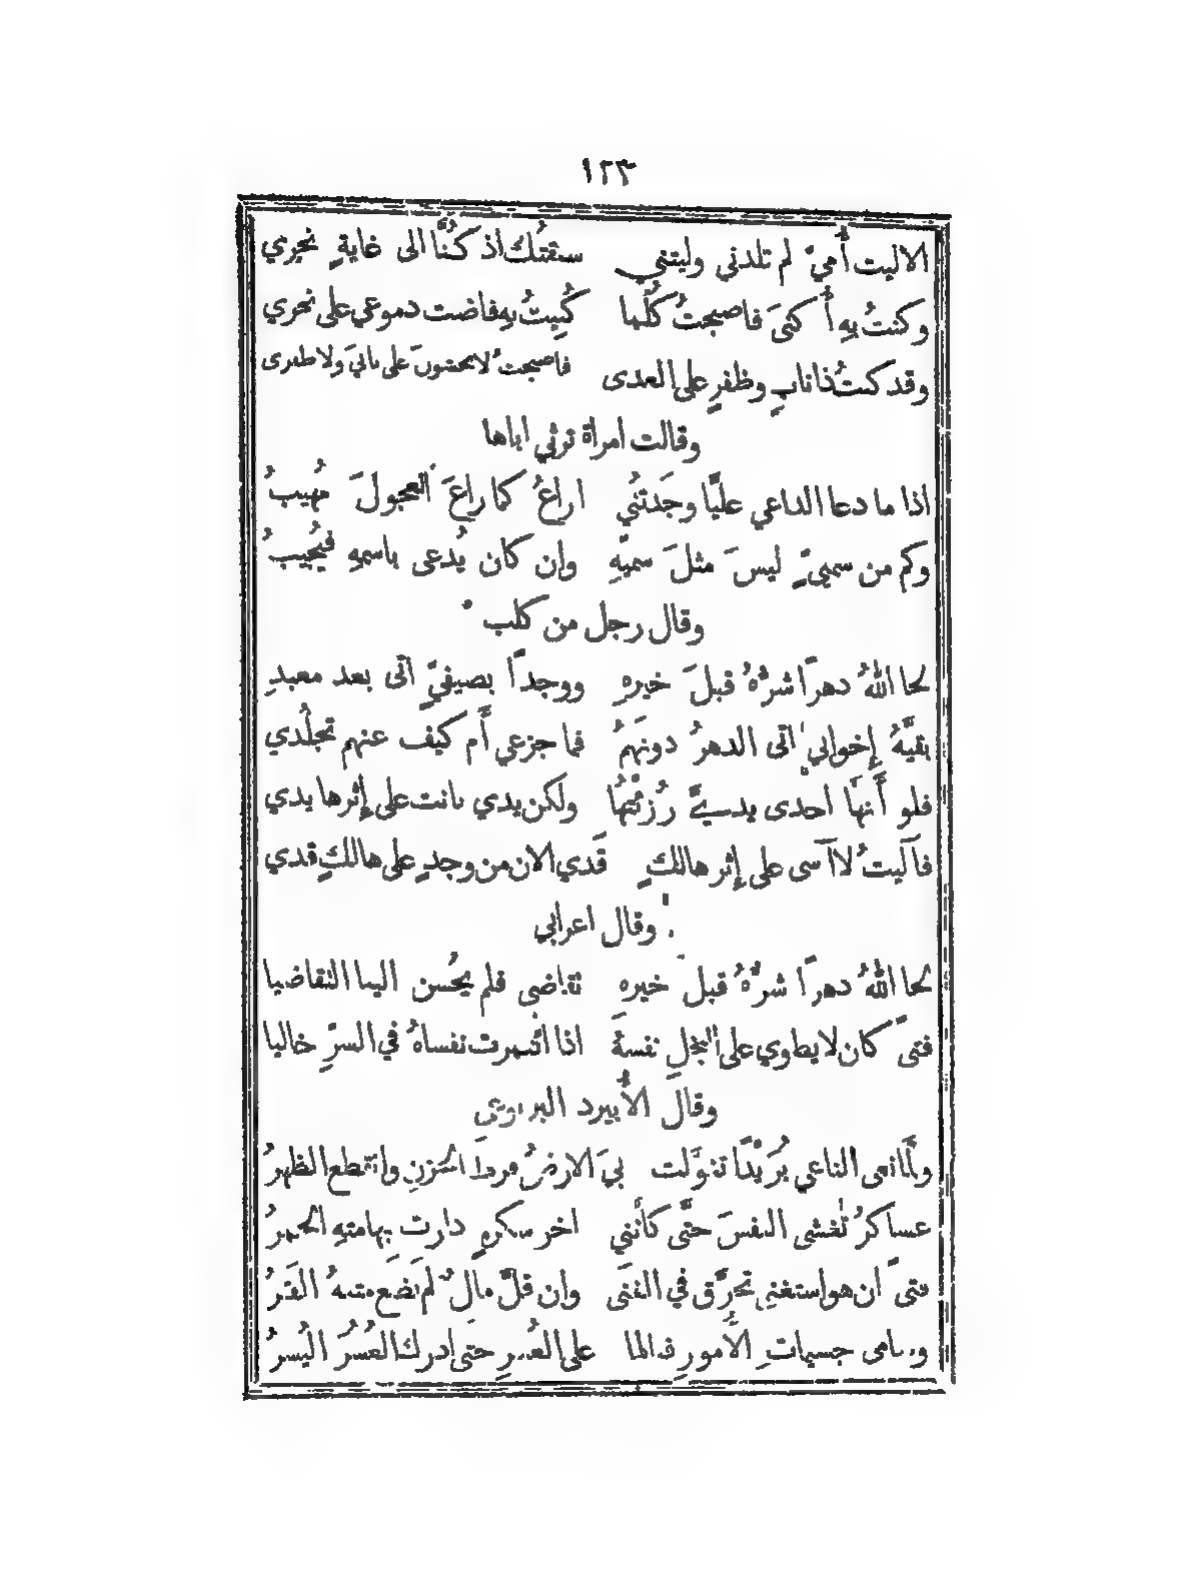 ١٢٣
الا ليت أُميّ لم تلدني وليتني سبقتُك اذ كُنَّا الى غايةٍ نجري
وكنتُ بِهِ أُكنى فاصبحتُ كُلَّما كُنِيتُ بِهِ فاضت دموعي على نحري
وقد كنتُ ذا نابٍ وظفرٍ على العدى فاصبحتُ لا يخشونَ على نابيَ ولا ظفري
وقالت امراة ترثي اباها
اذا ما دعا الداعي عليًّا وجَدتُني اراعُ كما راعَ العجولَ مُهيبُ
وكم من سميٍّ ليسَ مثلَ سميّهِ وان كان يُدعى باسمهِ فيُجيبُ
وقال رجل من كلب
لحا اللهُ دهراً شرُّهُ قبلَ خيرهِ ووجداً بصيفيٍّ اتى بعد معبدِ
بقيَّةُ إخواني اتى الدهرُ دونَهمُ فما جزعي أم كيف عنهم تجلُّدي
فلو أَنهَّا احدى يديَّ رُزئتُها ولكن يدي بانت على إثرها يدي
فآليتُ لا آسى على إثر هالكٍ قَدي الان من وجدٍ على هالكٍ قدي
وقال اعرابي
لحا اللهُ دهراً شرُّهُ قبل خيره تقاضى فلم يحُسن الينا التقاضيا
فتىً كان لا يطوي على البخلِ نفسهَ اذا ائتمرت نفساهُ في السرِّ خاليا
وقال الأُبيرد اليربوعي
ولَّما نعى الناعي بُرَيْدًا تغوَّلت بيَ الارضُ فرطَ الحزنِ وانقطع الظهرُ
عساكرُ تَغشى النفسَ حتَّى كأَنني اخو سكرةٍ دارت بِهامتهِ الخمرُ
فتىً ان هو استغنى تخرَّق في الغنَى وان قلَّ مالٌ لم يَضَع متنهُ الفَقرُ
وسامى جسيمات الأُمورِ فنالها على العُسرِ حتى ادرك العُسُرَ اليُسرُ